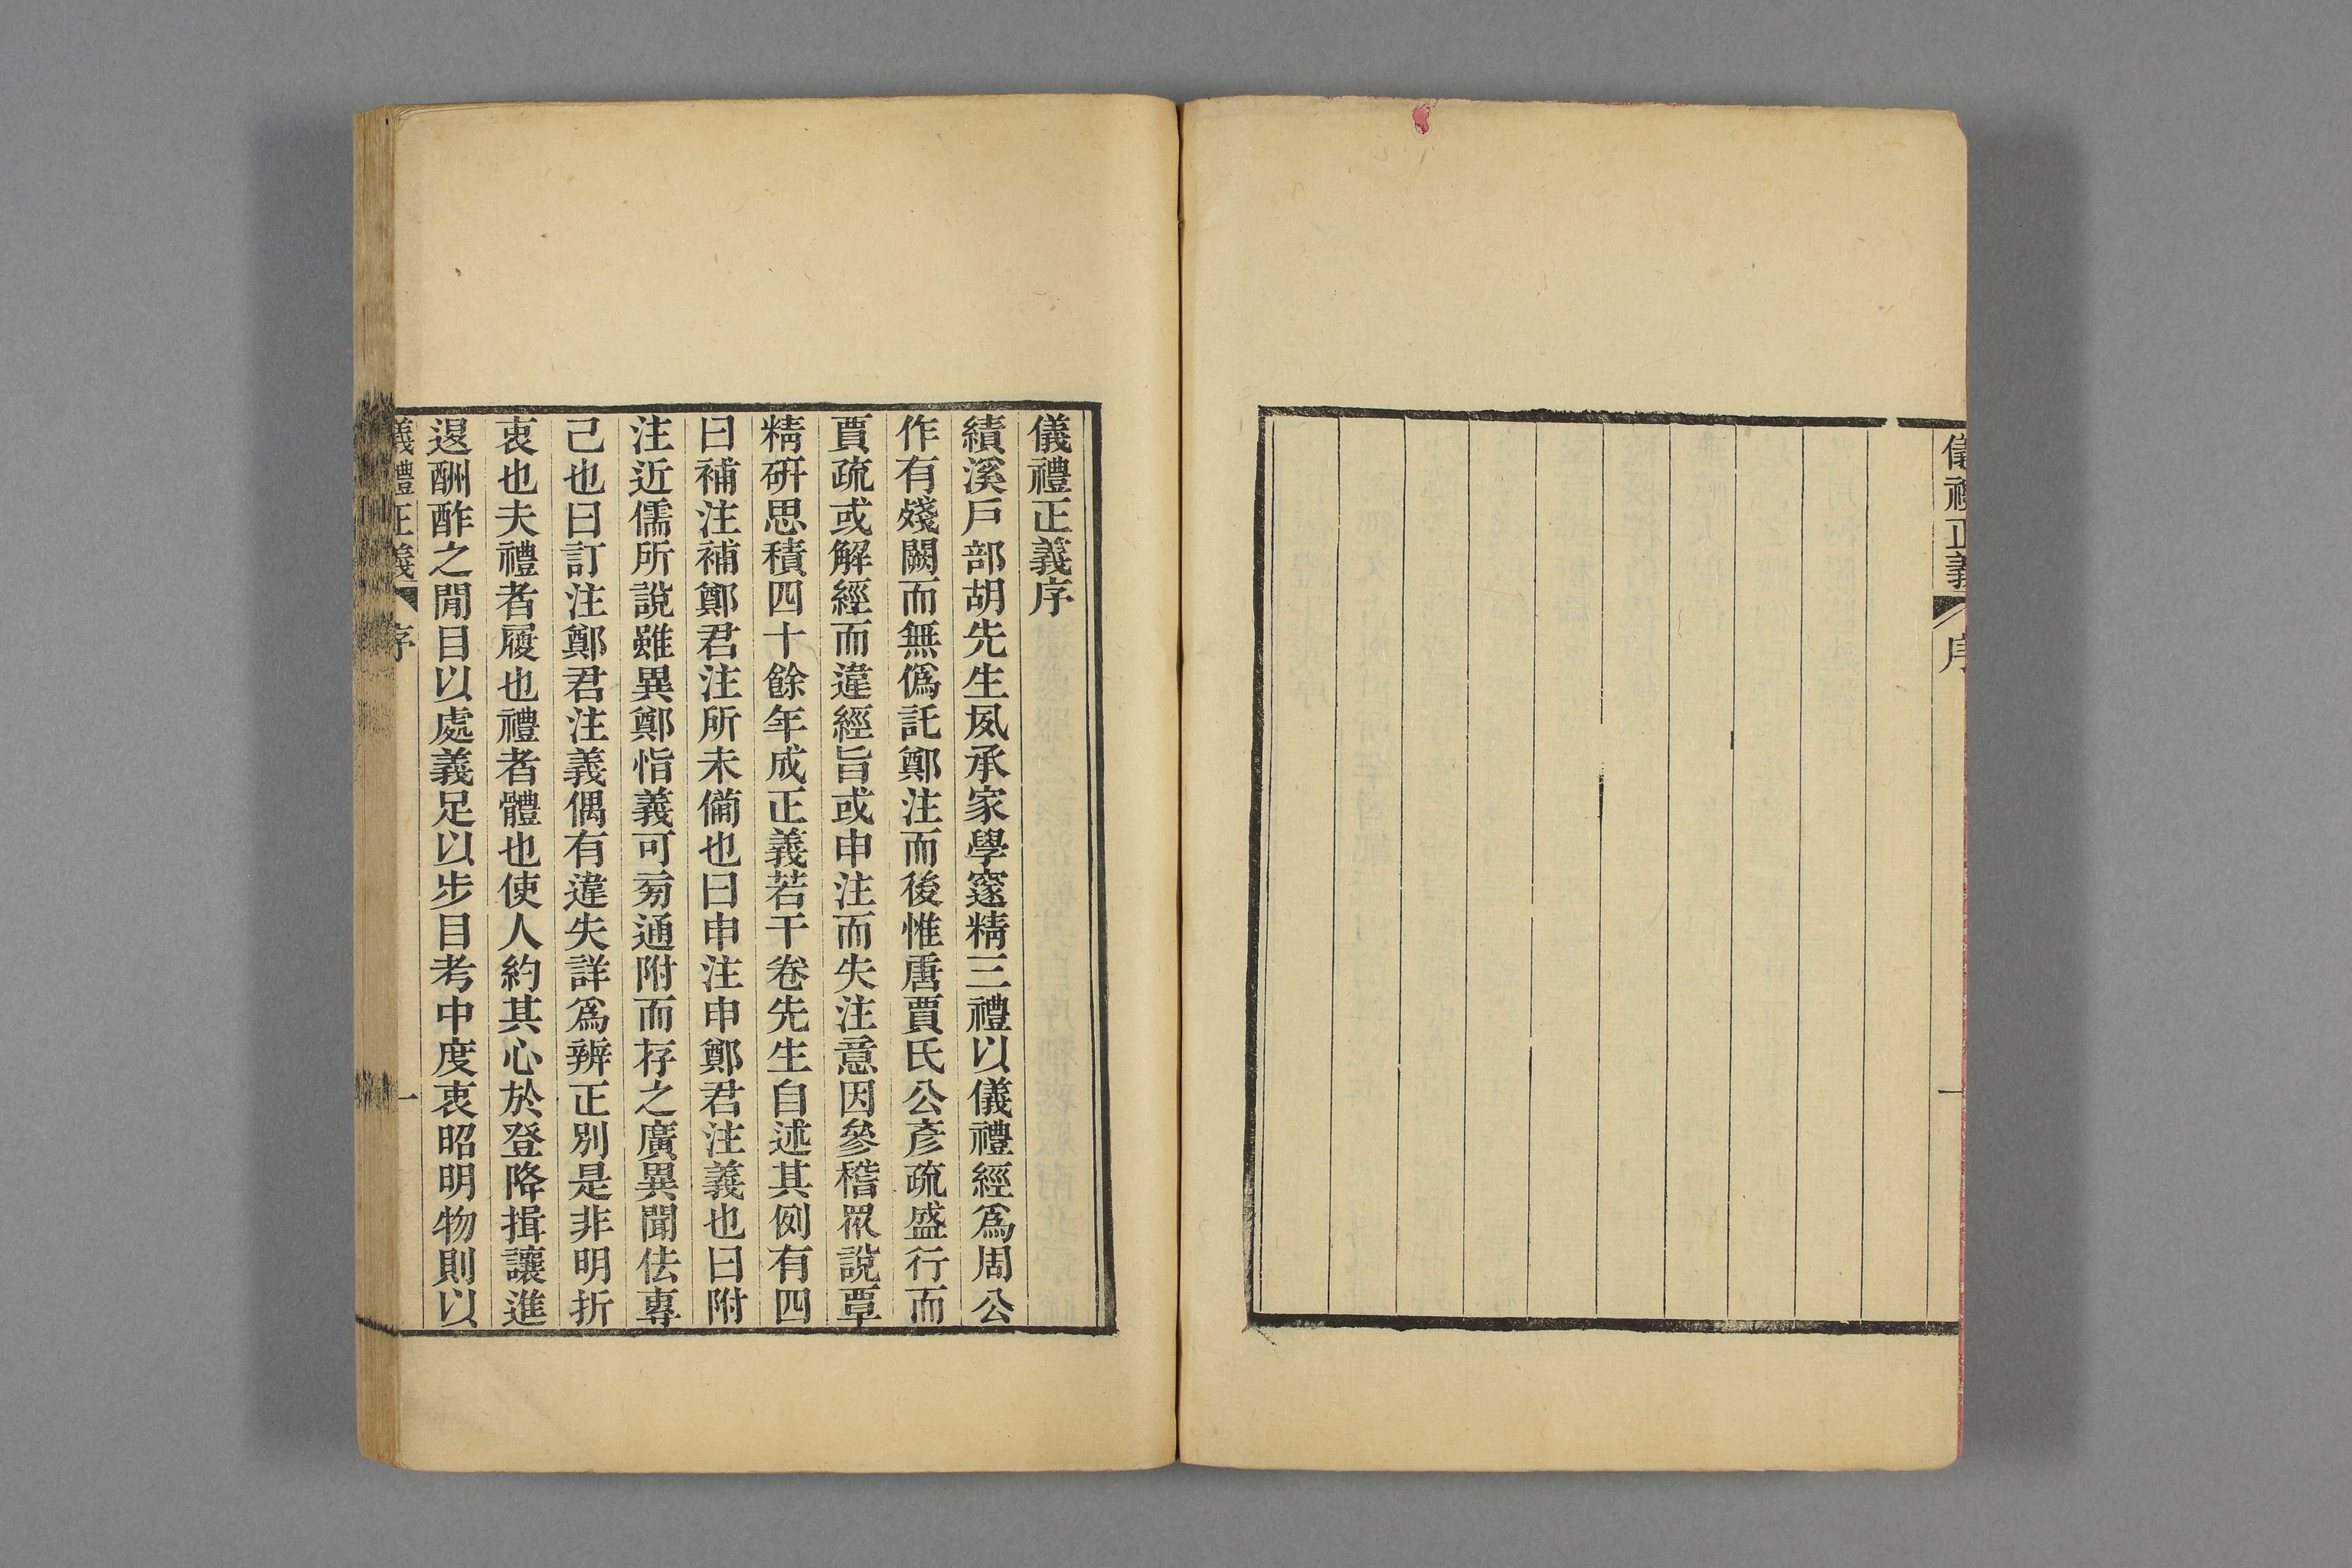 儀禮正義
序
一
儀禮正義序
績溪戶部胡先生夙承家學邃精三禮以儀禮經爲周公
作有殘闕而無僞託鄭注而後惟唐賈氏公彥疏盛行而
賈疏或解經而違經旨或申注而失注意因參稽眾說覃
精研思積四十餘年成正義若干卷先生自述其例有四
曰補注補鄭君注所未僃也曰申注申鄭君注義也曰附
注近儒所說雖異鄭恉義可㫄通附而存之廣異聞佉專
己也曰訂注鄭君注義偶有違失詳爲辨正別是非明折
衷也夫禮者履也禮者體也使人約其心於登降揖讓進
退酬酢之閒目以處義足以步目考中度衷昭明物則以
儀禮正義
序
一